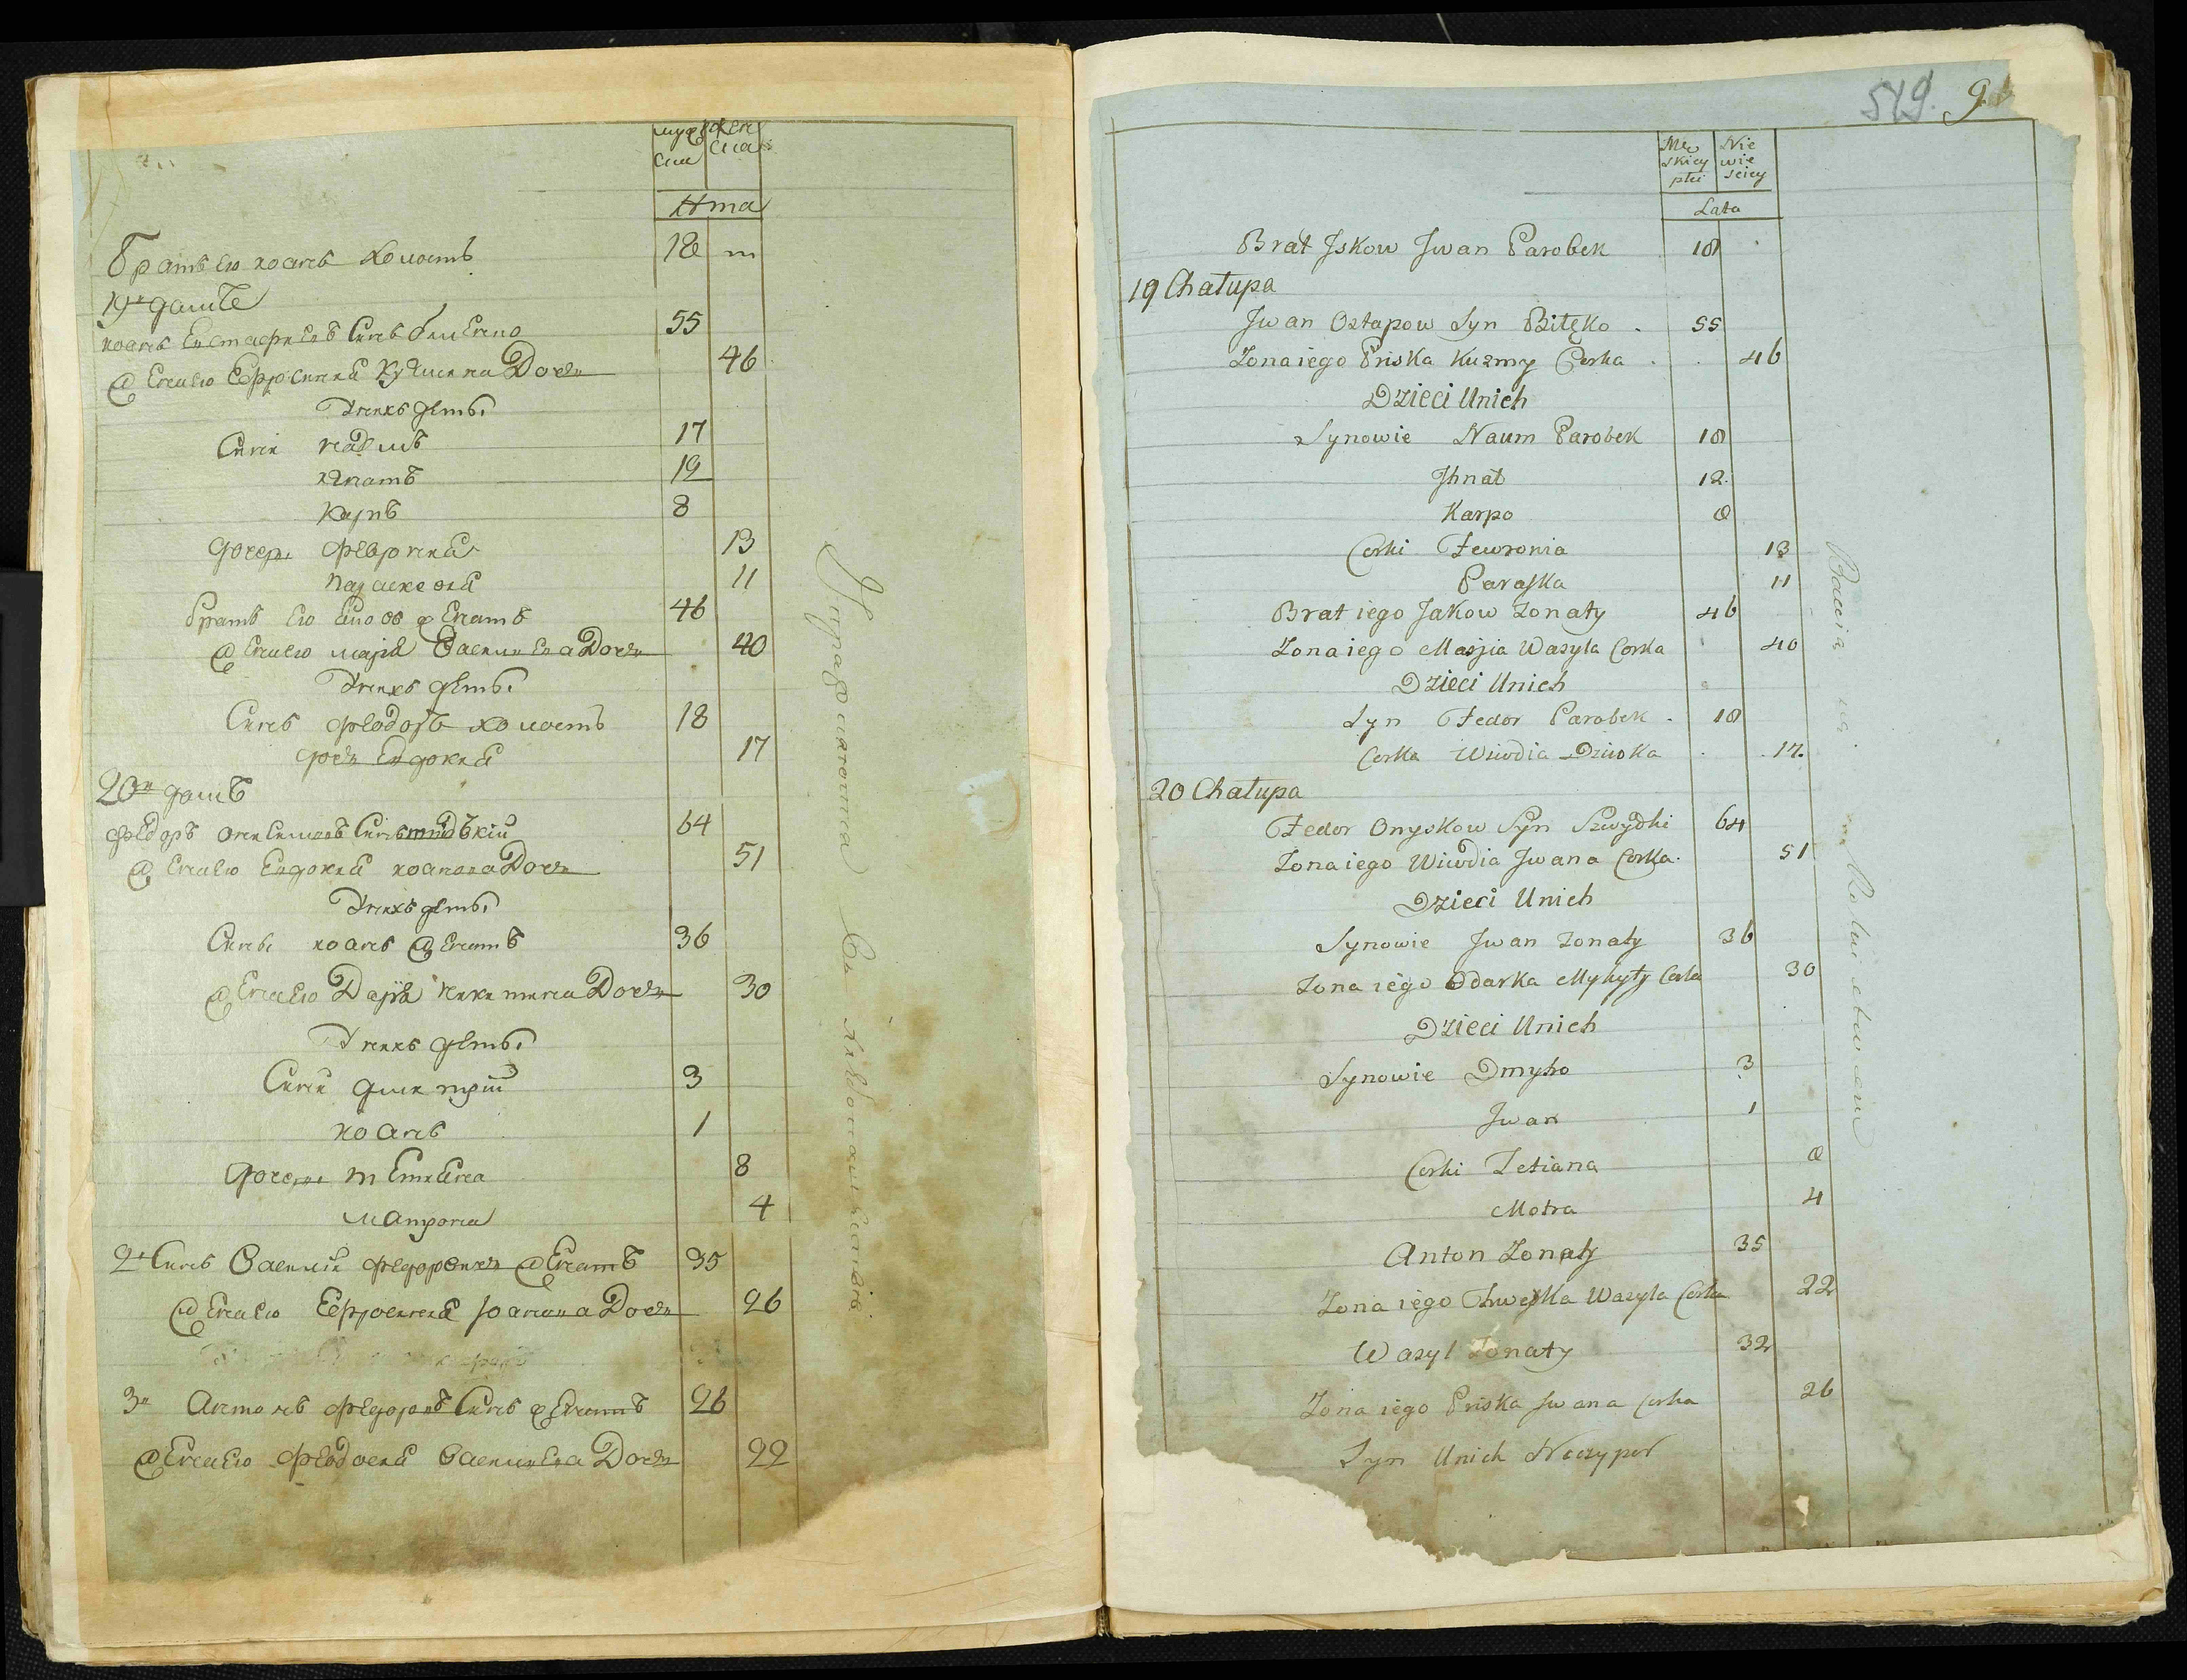 муже
ска
жен
ска
Лѣта
братъ его иоанъ холостъ 18
19й дамъ
иоанъ Евстафиевъ Синъ билЕнко 55
Жена его Ефросиния Кузмина Дочь 46
У нихъ дѣты
Сини наѹмъ 17
игнатъ 12
карпъ 8
дочеры февронея 13
параскевия 11
братъ его иаковъ жЕнатъ 46
Жена его мария Василева Дочь 40
У нихъ дѣты
Синъ феодоръ холостъ 18
дочь Евдокия 17
20й дамъ
феодоръ онисимовъ Синъ 64
Жена его Евдокия иоанова Дочь 51
У нихъ дѣты
Сины иоанъ ЖЕнатъ 36
Жена его Дария никитина Дочь 30
У нихъ дѣты
Сини димитрій 3
иоанъ 1
дочеры тЕтиЕна 8
матрона 4
2й Синъ Василий федоровичъ ЖЕнатъ 35
Жена его Ефросиния иоанова Дочь 26
3й Антонъ федоровъ Синъ жЕнатъ 26
Жена его феодосия Василева Дочь 22
549. 9
Mę
skiey
płci
Nie
wie
sciey
Lata
Brat Jskow Jwan Parobek 18
19 Chałupa
Jwan Ostapow Syn Bilęko 55
Zona iego Priska Kuzmy Corka 46
Dzieci Unich
Synowie Naum Parobek 18
Jhnat 12
Karpo 8
Corki Fewronia 13
Paraska 11
Brat iego Jakow Zonaty 46
Zona iego Marjia Wasyla Corka 40
Dzieci Unich
Syn Fedor Parobek 18
Corka Wiwdia Dziwka 17
20 Chałupa
Fedor Onyskow Syn Szwydki 64
Zona iego Wiwdia Jwana Corka 51
Dzieci Unich
Synowie Jwan Zonaty 36
Zona iego Odarka Mykyty Corka 30
Dzieci Unich
Synowie Dmytro 3
Jwan 1
Corki Tetiana 8
Motra 4
Anton Zonaty 35
Zona iego Chweska Wasyla Corka 22
Wasyl Zonaty 32
Zona iego Priska Jwana Corka 26
Syn Unich Neczypor